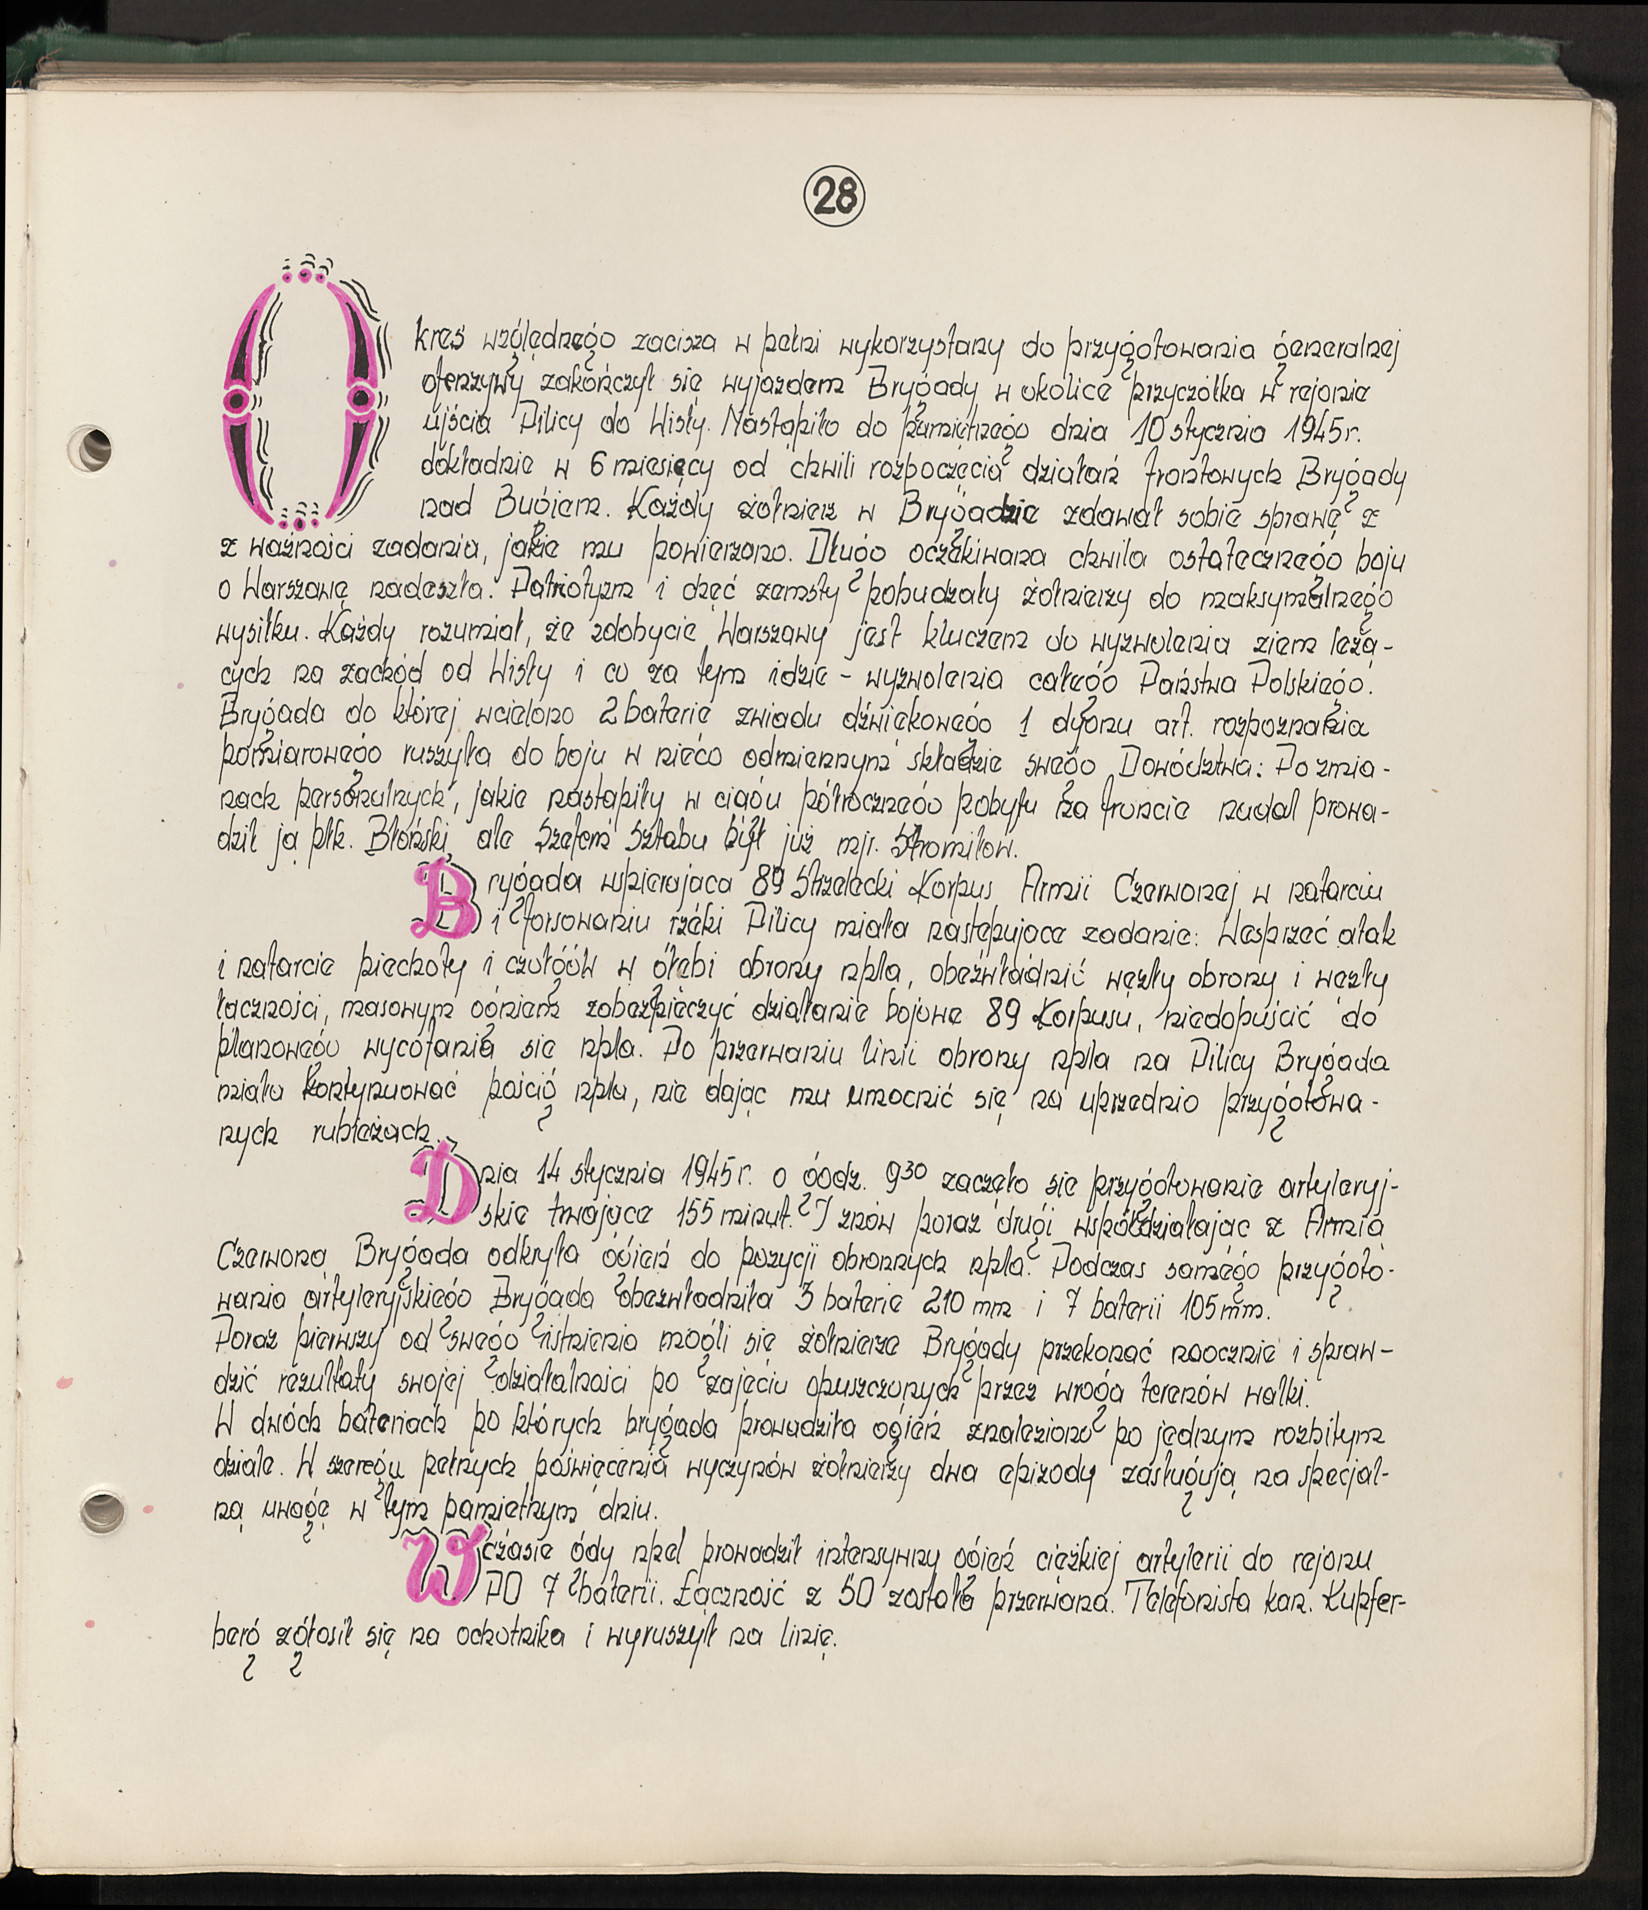 28
Okres względnego zacisza w pełni wykorzystany do przygotowania generalnej
ofenzywy zakończył się wyjazdem Brygady w okolice przyczółka w rejonie
ujścia Pilicy do Wisły. Nastąpiło do pamiętnego dnia 10 stycznia 1945 r.
dokładnie w 6 miesięcy od chwili rozpoczęcia działań frontowych Brygady
nad Bugiem. Każdy żołnierz w Brygadzie zdawał sobie sprawę z
z ważności zadania, jakie mu powierzono. Długo oczekiwana chwila ostatecznego boju
o Warszawę nadeszła. Patriotyzm i chęć zemsty pobudzały żołnierzy do maksymalnego
wysiłku. Każdy rozumiał, że zdobycie Warszawy jest kluczem do wyzwolenia ziem leżą-
cych na zachód od Wisły i co za tym idzie - wyzwolenia całego Państwa Polskiego.
Brygada do której wcielono 2 baterie zwiadu dźwiękowego 1 dyonu art. rozpoznania
pomiarowego ruszyła do boju w nieco odmiennym składzie swego Dowództwa: Po zmia-
nach personalnych, jakie nastąpiły w ciągu półrocznego pobytu na froncie nadal prowa-
dził ją płk. Błoński, ale Szefem Sztabu był już mjr. Stromiłow.
Brygada wspierająca 89 Strzelecki Korpus Armii Czerwonej w natarciu
i forsowaniu rzeki Pilicy miała następujące zadanie: Wesprzeć atak
i natarcie piechoty i czołgów w głębi obrony npla, obezwładnić węzły obrony i węzły
łączności, masowym ogniem zabezpieczyć działanie bojowe 89 Korpusu, niedopuścić do
planowego wycofania się npla. Po przerwaniu linii obrony npla na Pilicy Brygada
miała kontynuować pościg npla, nie dając mu umocnić się na uprzednio przygotowa-
nych rubieżach.
Dnia 14 stycznia 1945 r. o godz. 9³⁰ zaczęło się przygotowanie artyleryj-
skie trwające 155 minut. I znów poraz drugi współdziałając z Armią
Czerwoną Brygada odkryła ogień do pozycji obronnych npla. Podczas samego przygoto-
wania artyleryjskiego Brygada obezwładniła 3 baterie 210 mm i 7 baterii 105 mm.
Poraz pierwszy od swego istnienia mogli się żołnierze Brygady przekonać naocznie i spraw-
dzić rezultaty swojej działalności po zajęciu opuszczonych przez wroga terenów walki.
W dwóch bateriach po których brygada prowadziła ogień znaleziono po jednym rozbitym
dziale. W szeregu pełnych poświęcenia wyczynów żołnierzy dwa epizody zasługują na specjal-
ną uwagę w tym pamiętnym dniu.
W czasie gdy npel prowadził intensywny ogień ciężkiej artylerii do rejonu
PO 7 baterii. Łączność z SO została przerwana. Telefonista kan. Kupfer-
berg zgłosił się na ochotnika i wyruszył na linię.